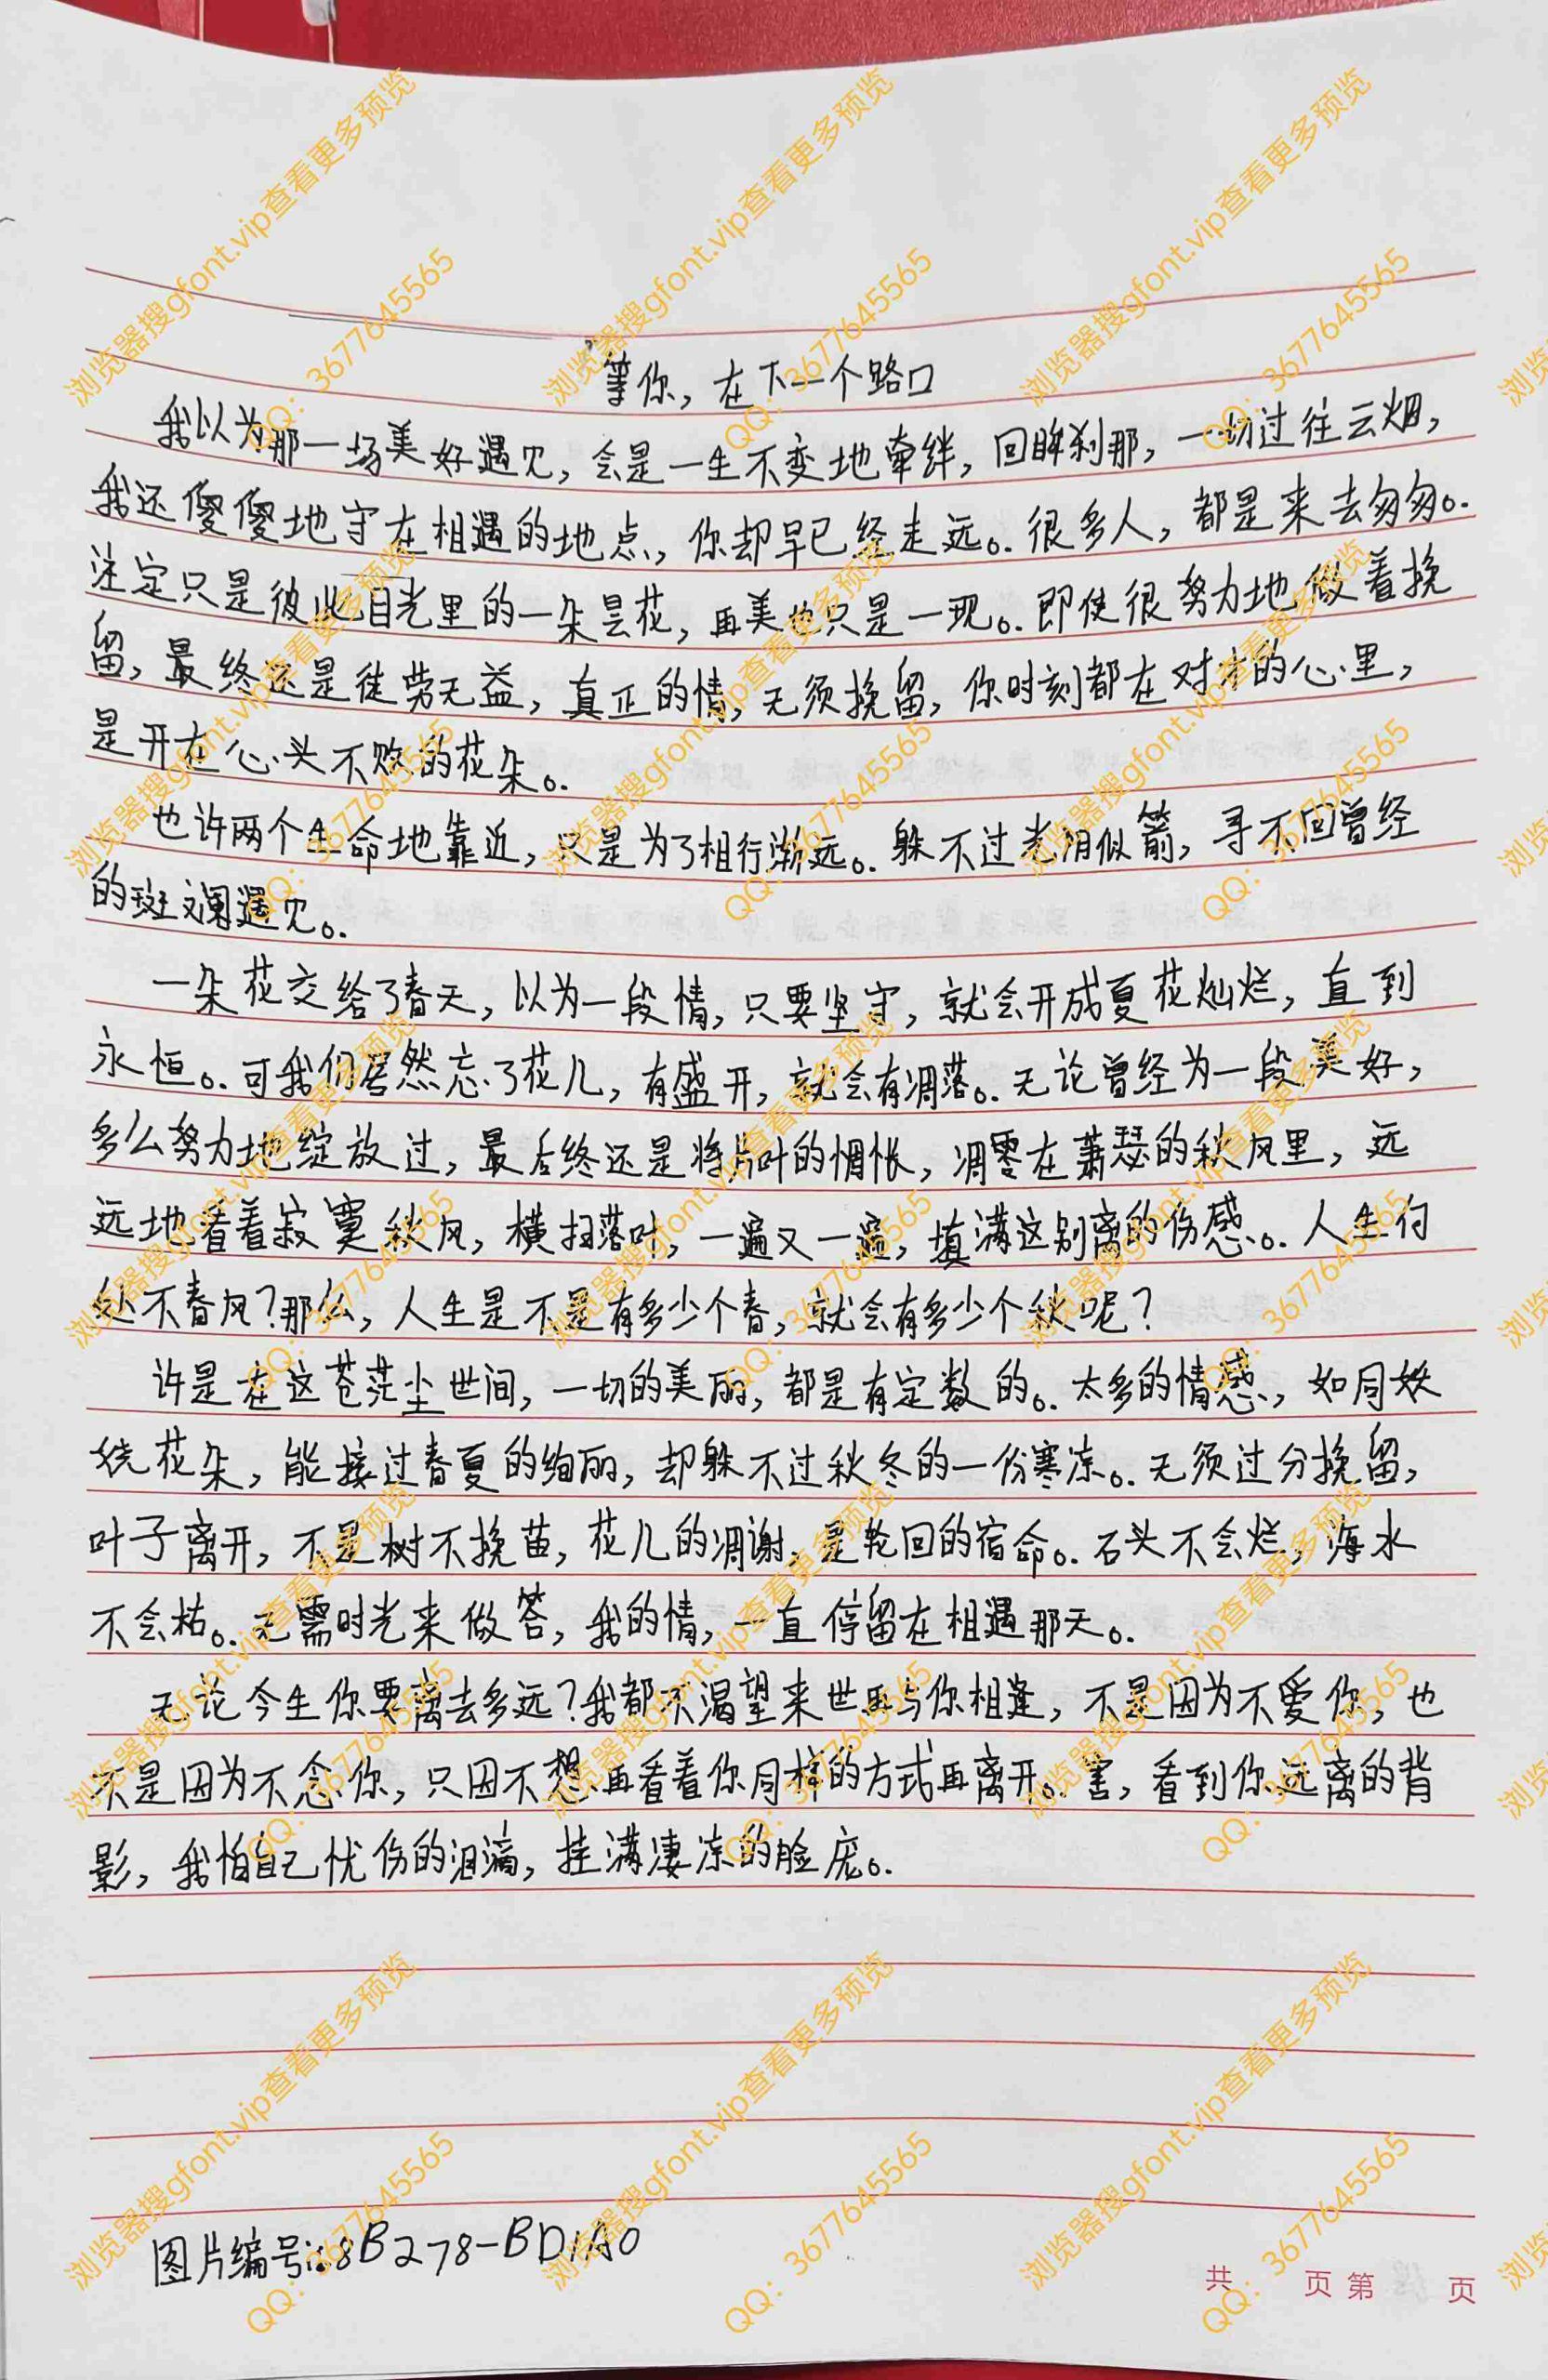 等你，在下一个路口
我以为那一场美好遇见，会是一生不变地牵绊，回眸刹那，一切过往云烟，
我还傻傻地守在相遇的地点，你却早已经走远。很多人，都是来去匆匆。
注定只是彼此目光里的一朵昙花，再美也只是一现。即使很努力地做着挽
留，最终还是徒劳无益，真正的情，无须挽留，你时刻都在对方的心里，
是开在心头不败的花朵。
也许两个生命地靠近，只是为了相行渐远。躲不过光阴似箭，寻不回曾经
的斑斓遇见。
一朵花交给了春天，以为一段情，只要坚守，就会开成夏花灿烂，直到
永恒。可我们居然忘了花儿，有盛开，就会有凋落。无论曾经为一段美好，
多么努力地绽放过，最后终还是将片叶的惆怅，凋零在萧瑟的秋风里，远
远地看着寂寞秋风，横扫落叶，一遍又一遍，填满这别离的伤感。人生何
处不春风？那么，人生是不是有多少个春，就会有多少个秋呢？
许是在这苍茫尘世间，一切的美丽，都是有定数的。太多的情感，如同妖
娆花朵，能接过春夏的绚丽，却躲不过秋冬的一份寒凉。无须过分挽留，
叶子离开，不是树不挽苗，花儿的凋谢，是轮回的宿命。石头不会烂，海水
不会枯。无需时光来做答，我的情，一直停留在相遇那天。
无论今生你要离去多远？我都不渴望来世再与你相逢，不是因为不爱你，也
不是因为不念你，只因不想再看着你同样的方式再离开。害，看到你远离的背
影，我怕自己忧伤的泪滴，挂满凄凉的脸庞。
图片编号:8B278-BD1A0
共 页 第 页
浏览器搜gfont.vip查看更多预览
QQ：3677645565